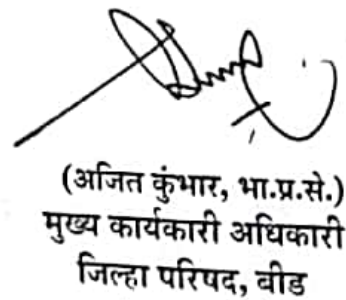 (अजित कुंभार, भा.प्र.से.)
मुख्य कार्यकारी अधिकारी
जिल्हा परिषद, बीड